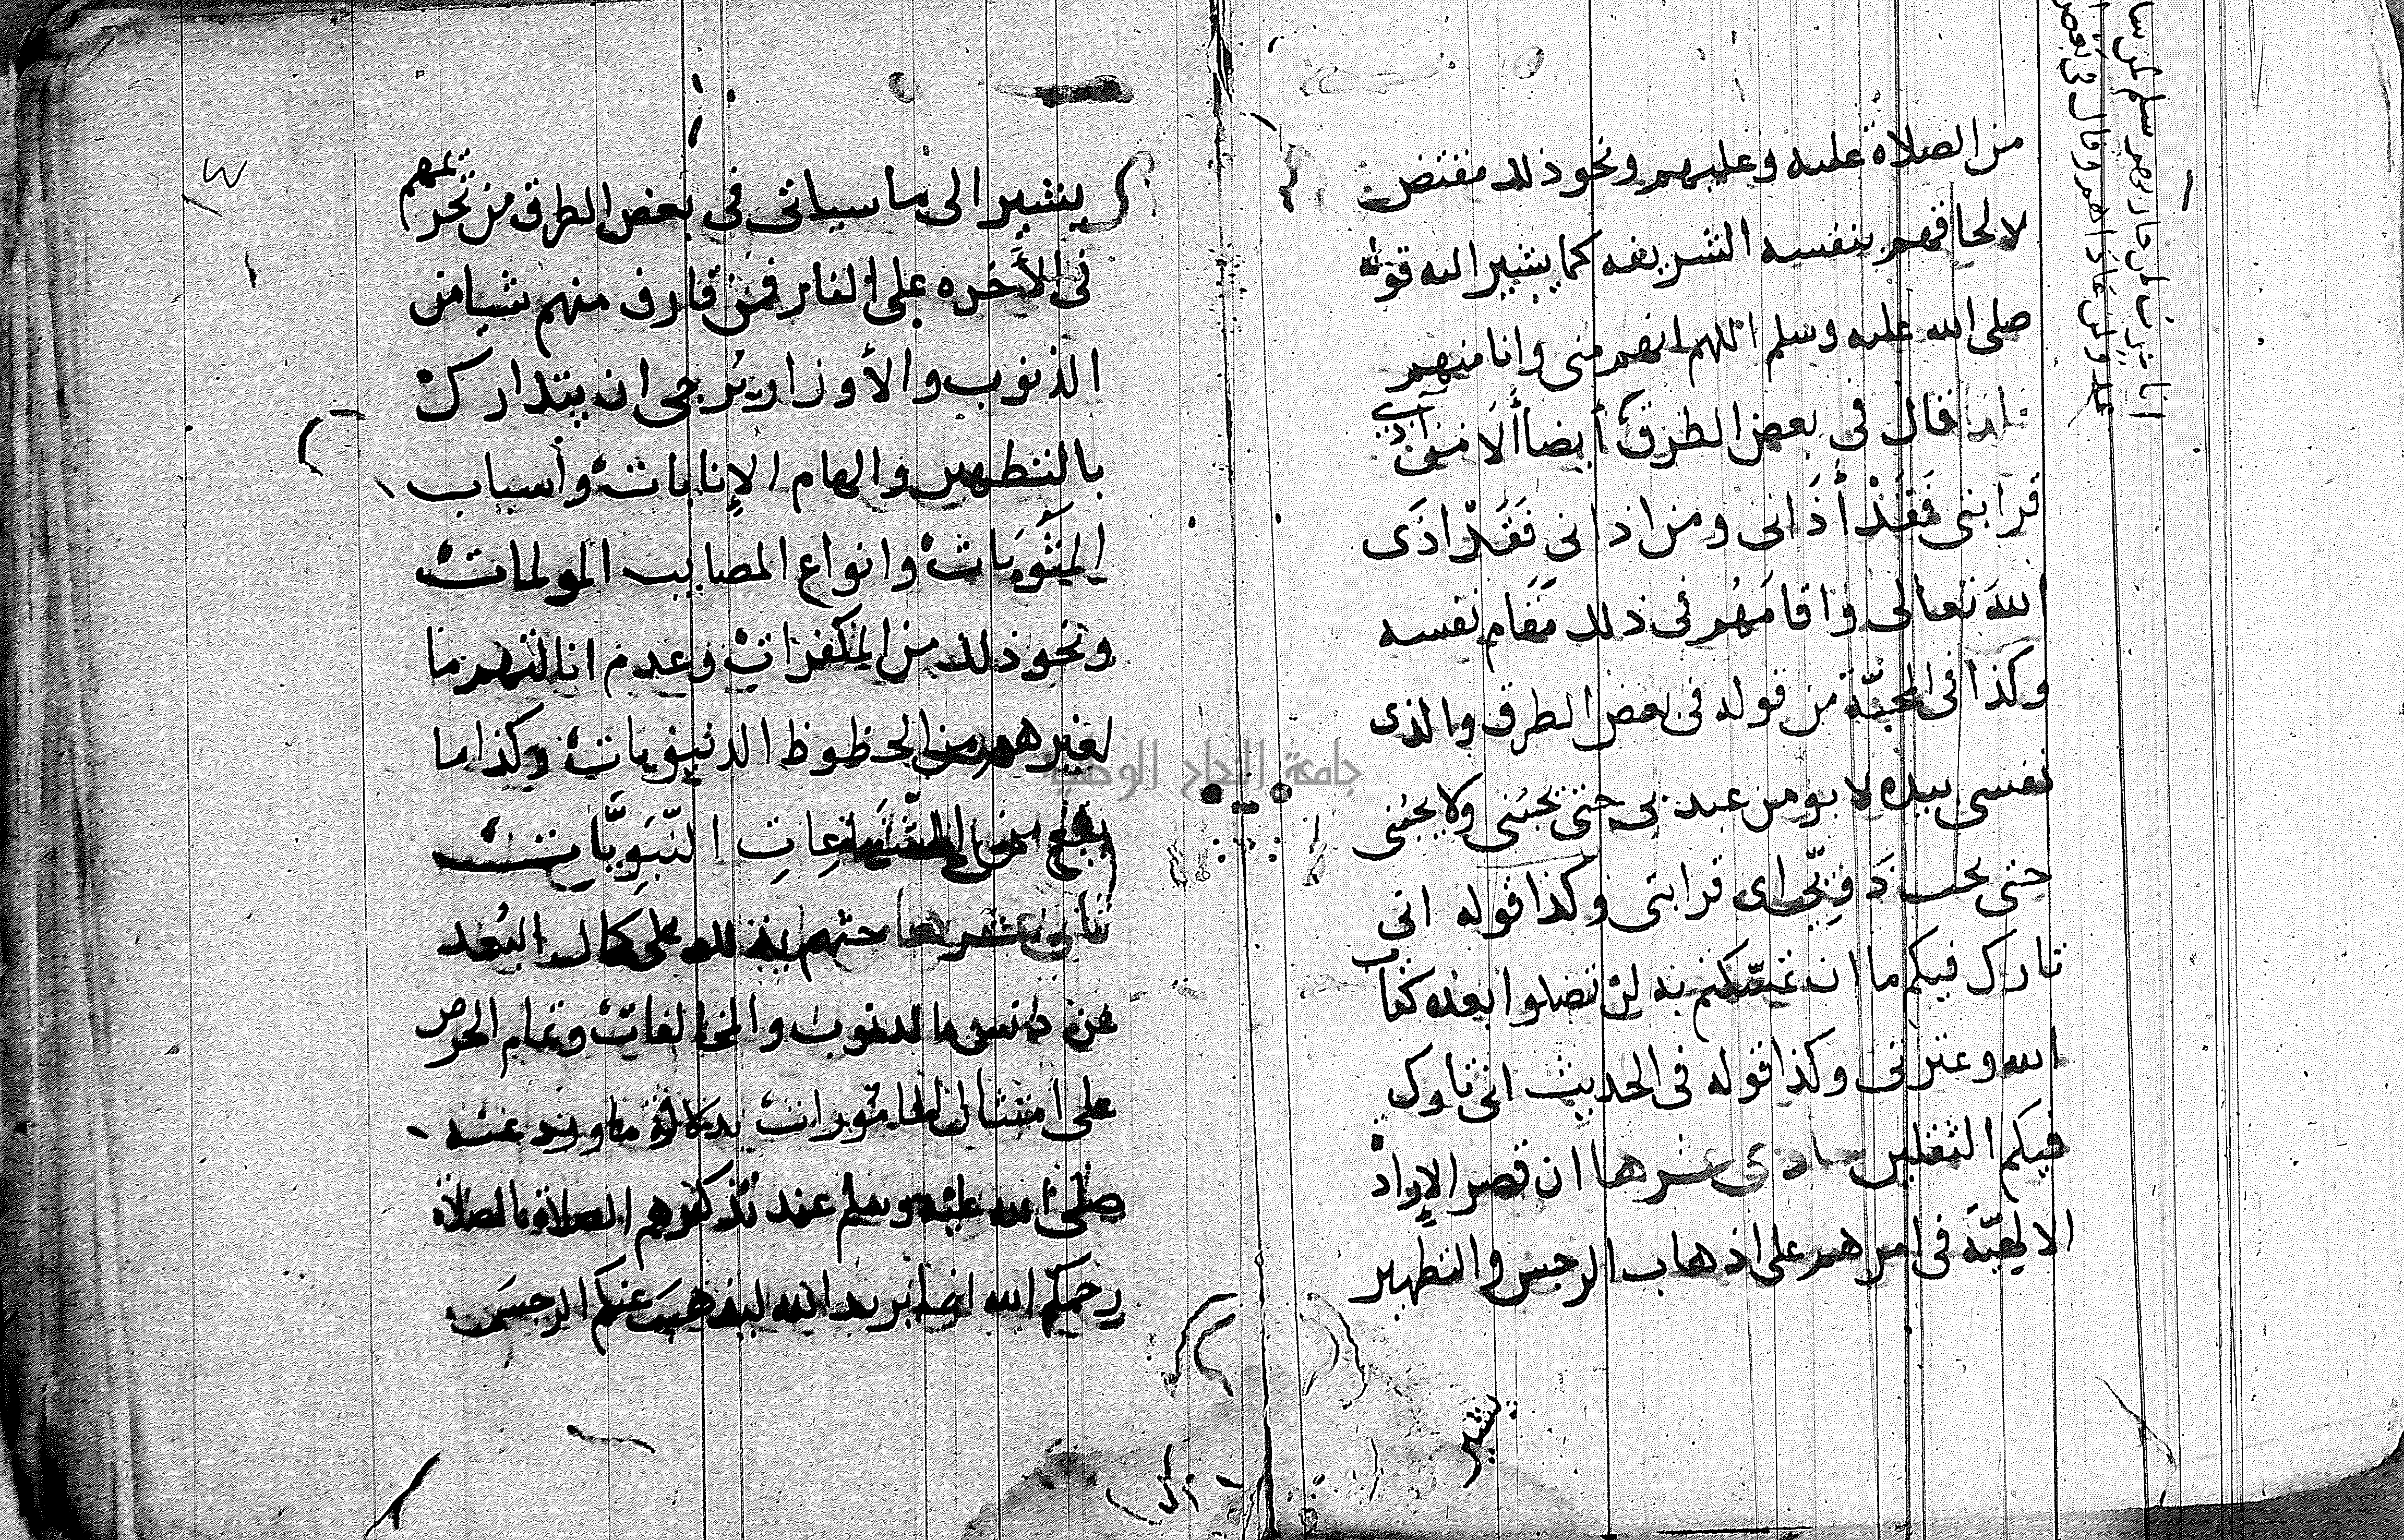 من الصلاة عليه وعليهم ونحو ذلك مقتض
لالحاقهم بنفسه الشريفه كما يشير اليه قوله
صلى الله عليه وسلم اللهم انهم منى وانا منهم
قال فى بعض الطرق أيضا ألا من آذى
قرابتى فَقَدْ أذَانى ومن اذانى فَقَدْ اذَى
اللهَ تعالى واقامَهُم فى ذلك مَقَام نفسه
وكذا فى المحبَّة من قوله فى بعض الطرق والذى
نفسى بيده لا يومن عبد بى حتى يحبنى ولا يحبنى
حتى يحب ذَوِيَّ اى قرابتى وكذا قوله انى
تارك فيكم ما ان تمسّكتم به لن تضلوا بعده كتاب
الله وعترتى وكذا قوله فى الحديث انى تارك
فيكم الثقلين حادى عشرها ان قصر الإراد
الالهيّة فى امرهم على اذهاب الرجس والتطهير
يشير
انا حرب لمن حاربهم سلم لمن سا
عدو لمن عاداهم وقال فى بعض
يشير الى ما سياتى فى بعض الطرق من تحريمهم
فى الأخره على النار فمن قارف منهم شيا من
الذنوب والأوزار يُرجى ان يتدارك
بالتطهير والهام الإنابات وأسباب
المَثُوبَات وانواع المصايب المولمات
ونحو ذلك من المكفرات وعدم انالتهم ما
لغيرهم من الحظوظ الدنيويات وكذا ما
يقع من الشَّفَاعاتِ النّبَوِيَّات
ثانى عشرها حثهم بذلك على كمال البُعد
عن دنس الذنوب والمخالفات وتمام الحرص
على امتثال المامورات بدلالة ما ورد عنه
صلى الله عليه وسلم عند تذكيرهم الصلاة بالصلاة
رحمكم الله انما يريد الله ليذهبَ عنكم الرجسَ
جامعة النجاح الوطنية